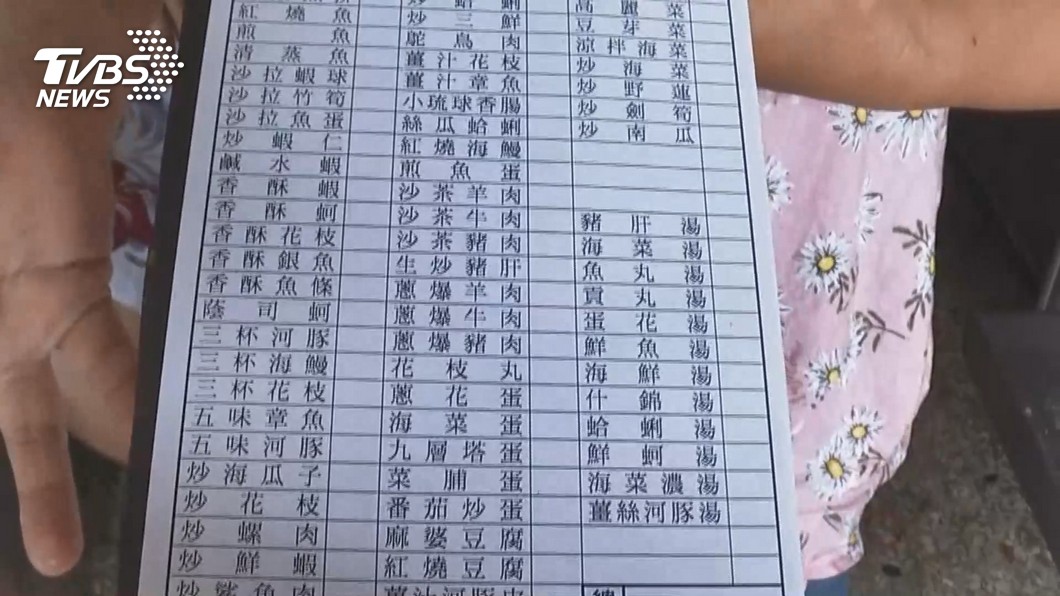 TVBS
NEWS
紅燒魚
煎魚
清蒸魚
沙拉蝦球
沙拉竹筍
沙拉魚蛋
炒蝦仁
鹹水蝦
香酥蝦
香酥蚵
香酥花枝
香酥銀魚
香酥魚條
蔭司蚵
三杯河豚
三杯海鰻
三杯花枝
五味章魚
五味河豚
炒海瓜子
炒花枝
炒螺肉
炒鮮蝦
炒鯊魚肉
炒蛤蜊
炒三鮮
鴕鳥肉
薑汁花枝
薑汁章魚
小琉球香腸
絲瓜蛤蜊
紅燒海鰻
煎魚蛋
沙茶羊肉
沙茶牛肉
沙茶豬肉
生炒豬肝
蔥爆羊肉
蔥爆牛肉
蔥爆豬肉
花枝丸
蔥花蛋
海菜蛋
九層塔蛋
菜脯蛋
番茄炒蛋
麻婆豆腐
紅燒豆腐
薑汁河豚皮
高麗菜
豆芽菜
涼拌海菜
炒海菜
炒野蓮
炒劍筍
炒南瓜
豬肝湯
海菜湯
魚丸湯
貢丸湯
蛋花湯
鮮魚湯
海鮮湯
什錦湯
蛤蜊湯
鮮蚵湯
海菜濃湯
薑絲河豚湯
總